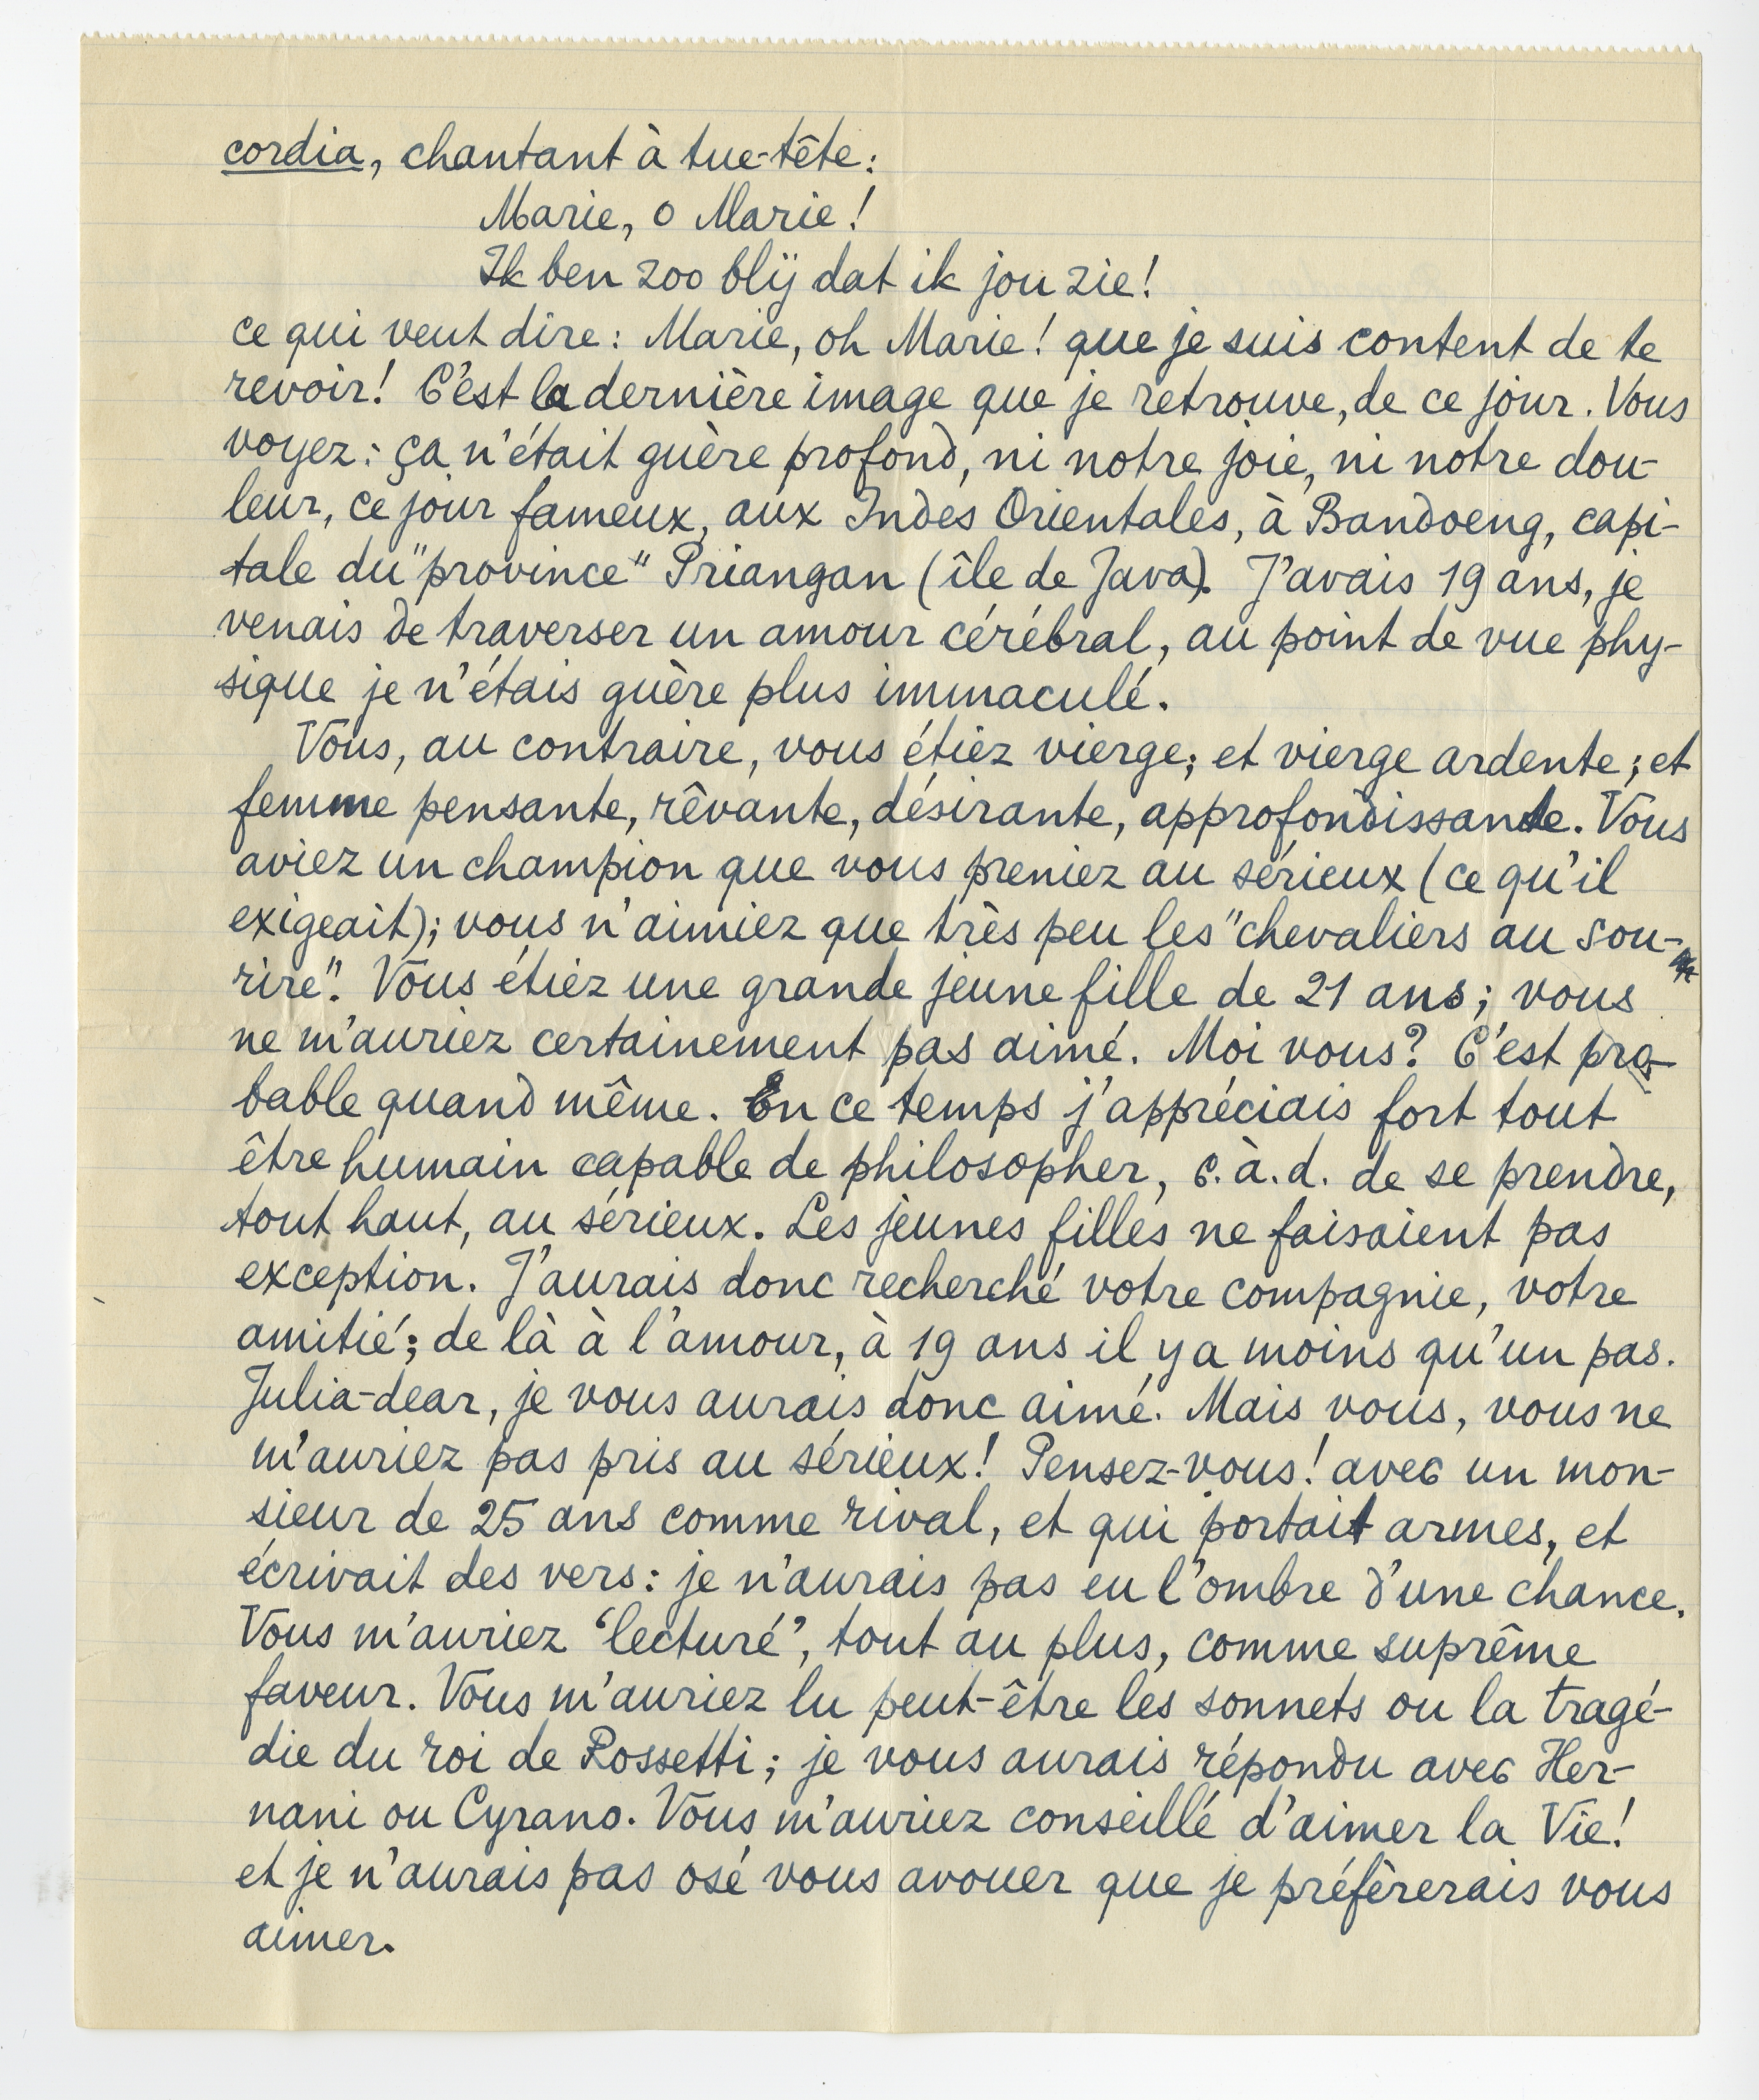 cordia, chantant à tue-tête:
Marie, o Marie!
Ik ben zoo blij dat ik jou zie!
ce qui veut dire: Marie, oh Marie! que je suis content de te
revoir! C'est la dernière image que je retrouve, de ce jour. Vous
voyez: ça n'était guère profond, ni notre joie, ni notre dou-
leur, ce jour fameux, aux Indes Orientales, à Bandoeng, capi-
tale du "province" Priangan (île de Java). J'avais 19 ans, je
venais de traverser un amour cérébral, au point de vue phy-
sique je n'étais guère plus immaculé.
Vous, au contraire, vous étiez vierge; et vierge ardente; et
femme pensante, rêvante, désirante, approfondissante. Vous
aviez un champion que vous preniez au sérieux (ce qu'il
exigeait); vous n'aimiez que très peu les "chevaliers au sou-
rire". Vous étiez une grande jeune fille de 21 ans; vous
ne m'auriez certainement pas aimé. Moi vous? C'est pro-
bable quand même. En ce temps j'appréciais fort tout
être humain capable de philosopher, c.à.d. de se prendre,
tout haut, au sérieux. Les jeunes filles ne faisaient pas
exception. J'aurais donc recherché votre compagnie, votre
amitié; de là à l'amour, à 19 ans il y a moins qu'un pas.
Julia-dear, je vous aurais donc aimé. Mais vous, vous ne
m'auriez pas pris au sérieux! Pensez-vous! avec un mon-
sieur de 25 ans comme rival, et qui portait armes, et
écrivait des vers: je n'aurais pas eu l'ombre d'une chance.
Vous m'auriez 'lecturé', tout au plus, comme suprême
faveur. Vous m'auriez lu peut-être les sonnets ou la tragé-
die du roi de Rossetti; je vous aurais répondu avec Her-
nani ou Cyrano. Vous m'auriez conseillé d'aimer la Vie!
et je n'aurais pas osé vous avouer que je préfèrerais vous
aimer.